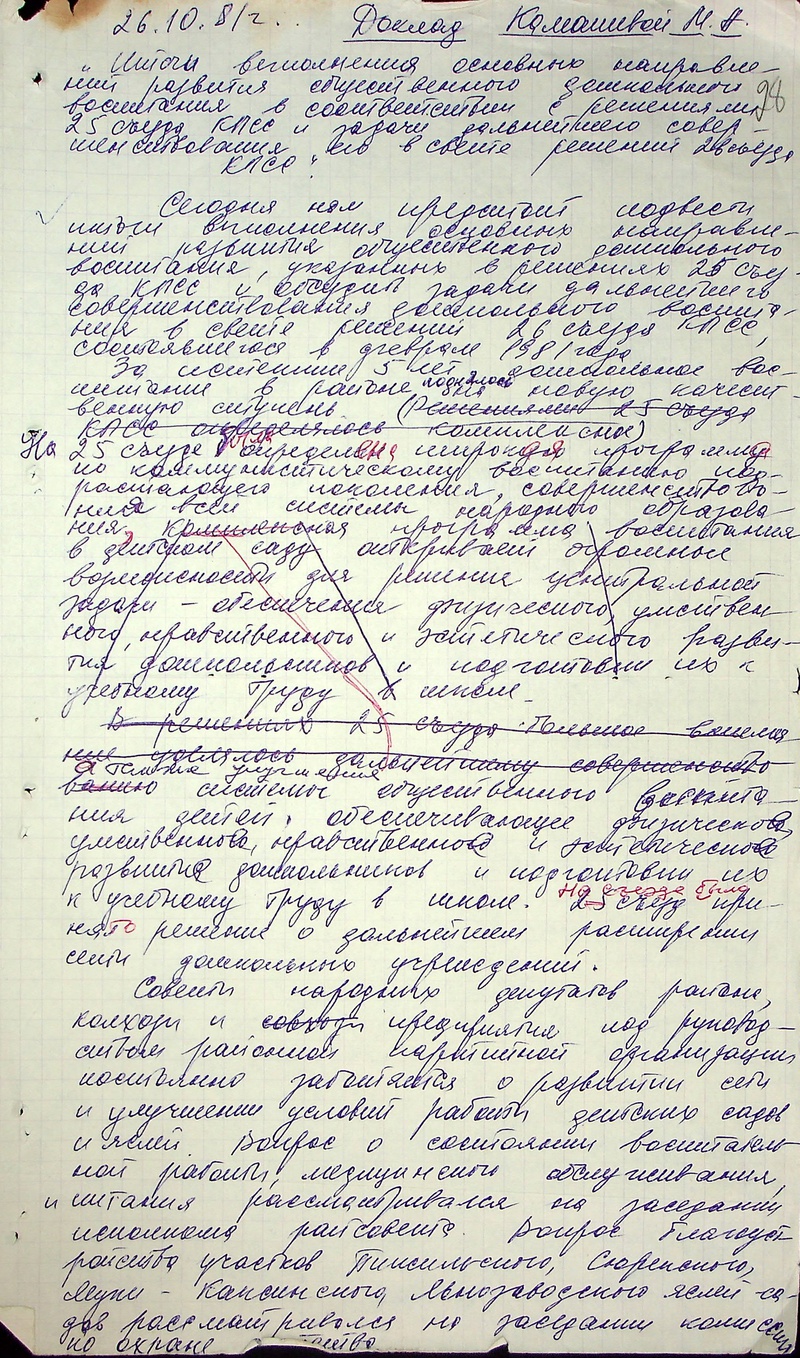 26.10.81г. Доклад Камашевой М.Н.
„Итоги выполнения основных направле-
ний развития общественного дошкольного
воспитания в соответствии с решениями
98
25 съезда КПСС и задачи дальнейшего совер-
шенствования его в свете решений 26 съезда
КПСС".
Сегодня нам предстоит подвести
итоги выполнения основных направле-
ний развития общественного дошкольного
воспитания, указанных в решениях 25 съез-
да КПСС и обсудить задачи дальнейшего
совершенствования дошкольного воспита-
ния в свете решений 26 съезда КПСС,
состоявшегося в феврале 1981 года.
За истекшие 5 лет дошкольное вос-
питание в районе поднялось на новую качест-
венную ступень (Решениями 25 съезда
КПСС определялось комплексное)
На 25 съезде была определена широкая программа
по коммунистическому воспитанию под-
растающего поколения, совершенствова-
ния всей системы народного образова-
ния. Комплексная программа воспитания
в детском саду открывает огромные
возможности для решения центральной
задачи - обеспечения физического, умствен-
ного, нравственного и эстетического разви-
тия дошкольников и подготовки их к
учебному труду в школе.
В решениях 25 съезда большое внима-
ние уделялось дальнейшему совершенство-
а также улучшения
ванию системы общественного воспита-
ния детей, обеспечивающее физическое,
умственное, нравственное и эстетическое
развитие дошкольников и подготовки их
к учебному труду в школе. На съезде было
25 съезд при-
нято решение о дальнейшем расширении
сети дошкольных учреждений.
Советы народных депутатов района,
колхозы и совхозы предприятия под руковод-
ством районной партийной организации
постоянно заботятся о развитии сети
и улучшении условий работы детских садов
и яслей. Вопрос о состоянии воспитатель-
ной работы, медицинского обслуживания,
и питания рассматривался на заседании
исполкома райсовета. Вопрос благоуст-
ройства участков
ясли-са-
дов рассматривался на заседании комиссии
по охране